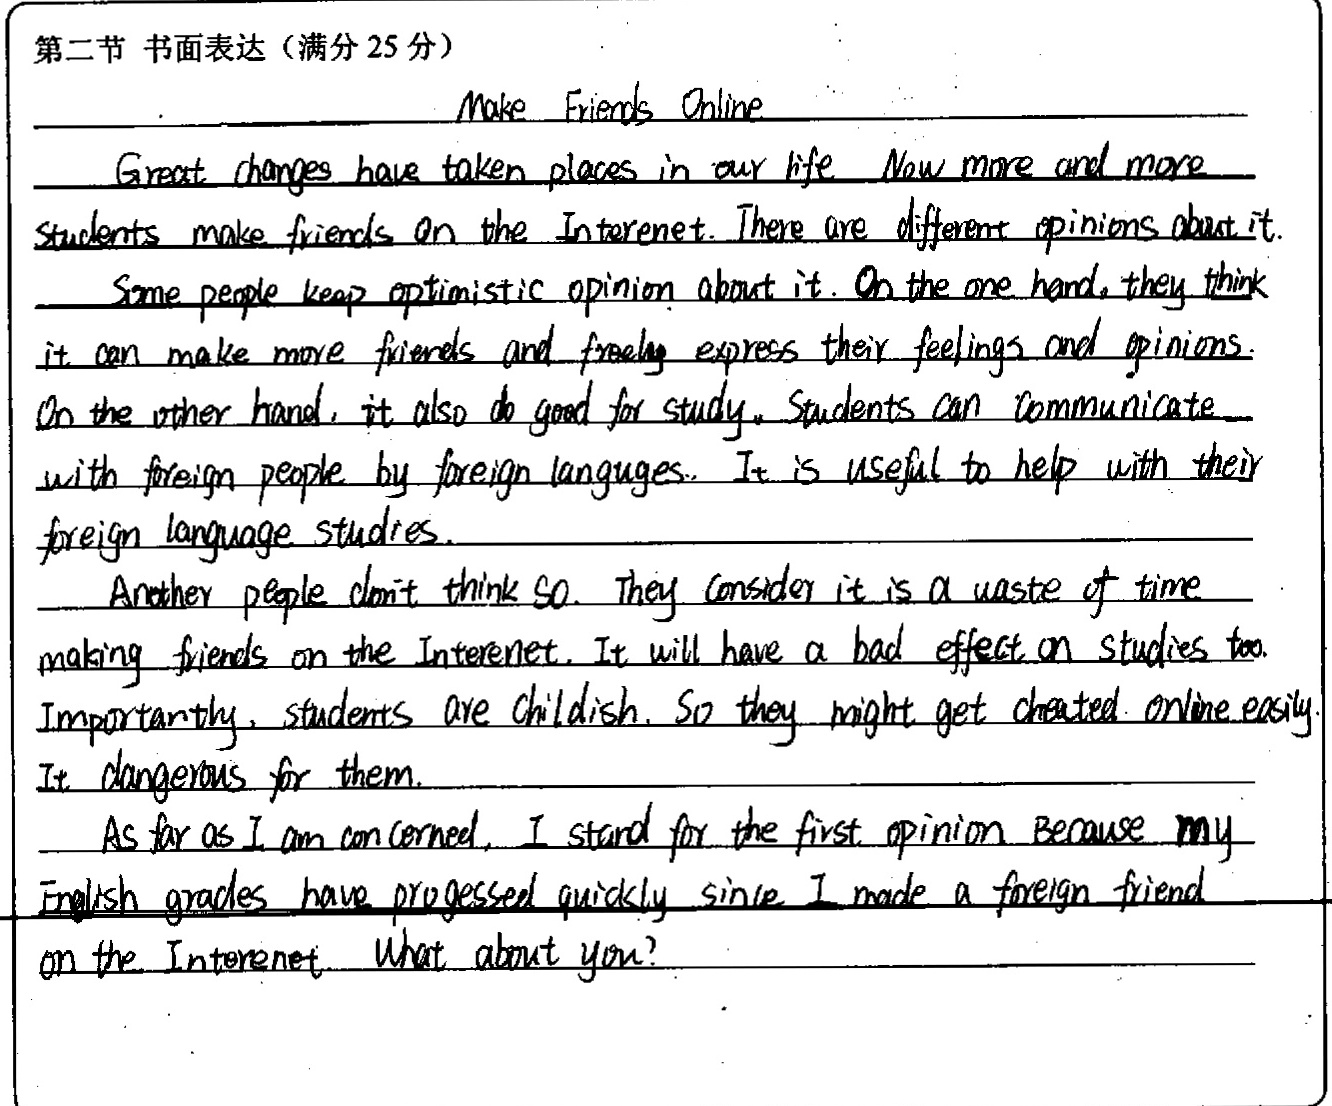 第二节 书面表达（满分 25 分）
Make Friends Online
Great changes have taken places in our life Now more and more
students make friends on the Interenet. There are different opinions about it.
Some people keep optimistic opinion about it. On the one hand, they think
it can make more friends and freely express their feelings and opinions.
On the other hand, it also do good for study. Students can communicate
with foreign people by foreign languges. It is useful to help with their
foreign language studies.
Another people don't think so. They consider it is a waste of time
making friends on the Interenet. It will have a bad effect on studies too.
Importantly, students are childish. So they might get cheated online easily.
It dangerous for them.
As far as I am concerned, I stand for the first opinion Because my
English grades have progessed quickly since I made a foreign friend
on the Interenet What about you?